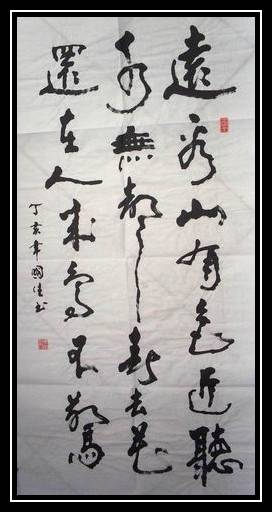 遠看山有色近聽
水無聲春去花
還在人來鳥不驚
丁亥